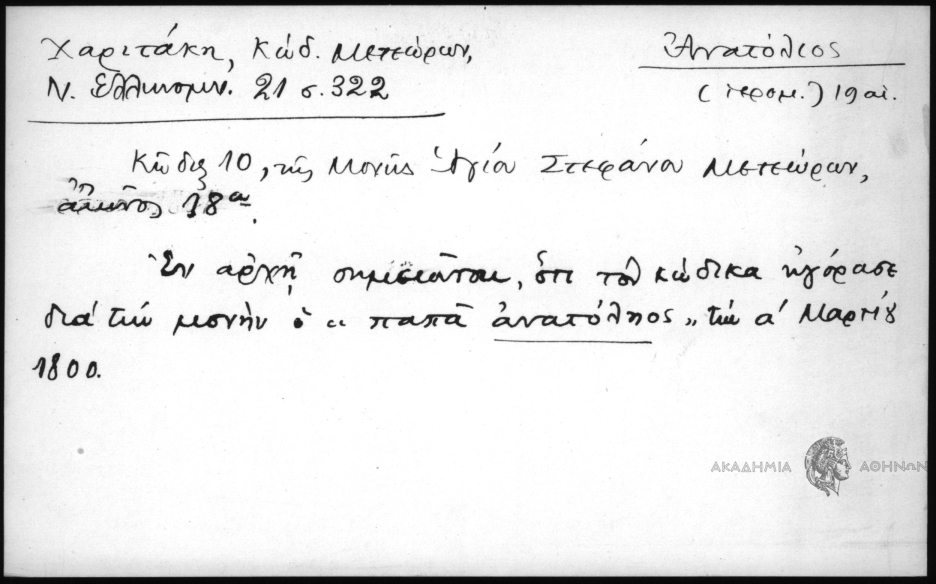 Χαριτάκη, Κώδ. Μετεώρων,
Ν. Ελληνομν. 21 σ. 322
Ἀνατόλιος
(ἱερομ.) 19 αἰ.
Κῶδιξ 10, τῆς Μονῆς Ἁγίου Στεφάνου Μετεώρων,
αἰῶνος 18ου.
Ἐν ἀρχῇ σημειοῦται, ὅτι τὸν κώδικα ἠγόρασε
διὰ τὴν μονὴν ὁ "παπᾶ ἀνατόληος" τὴν α' Μαρτίου
1800.
ΑΚΑΔΗΜΙΑ ΑΘΗΝΩΝ